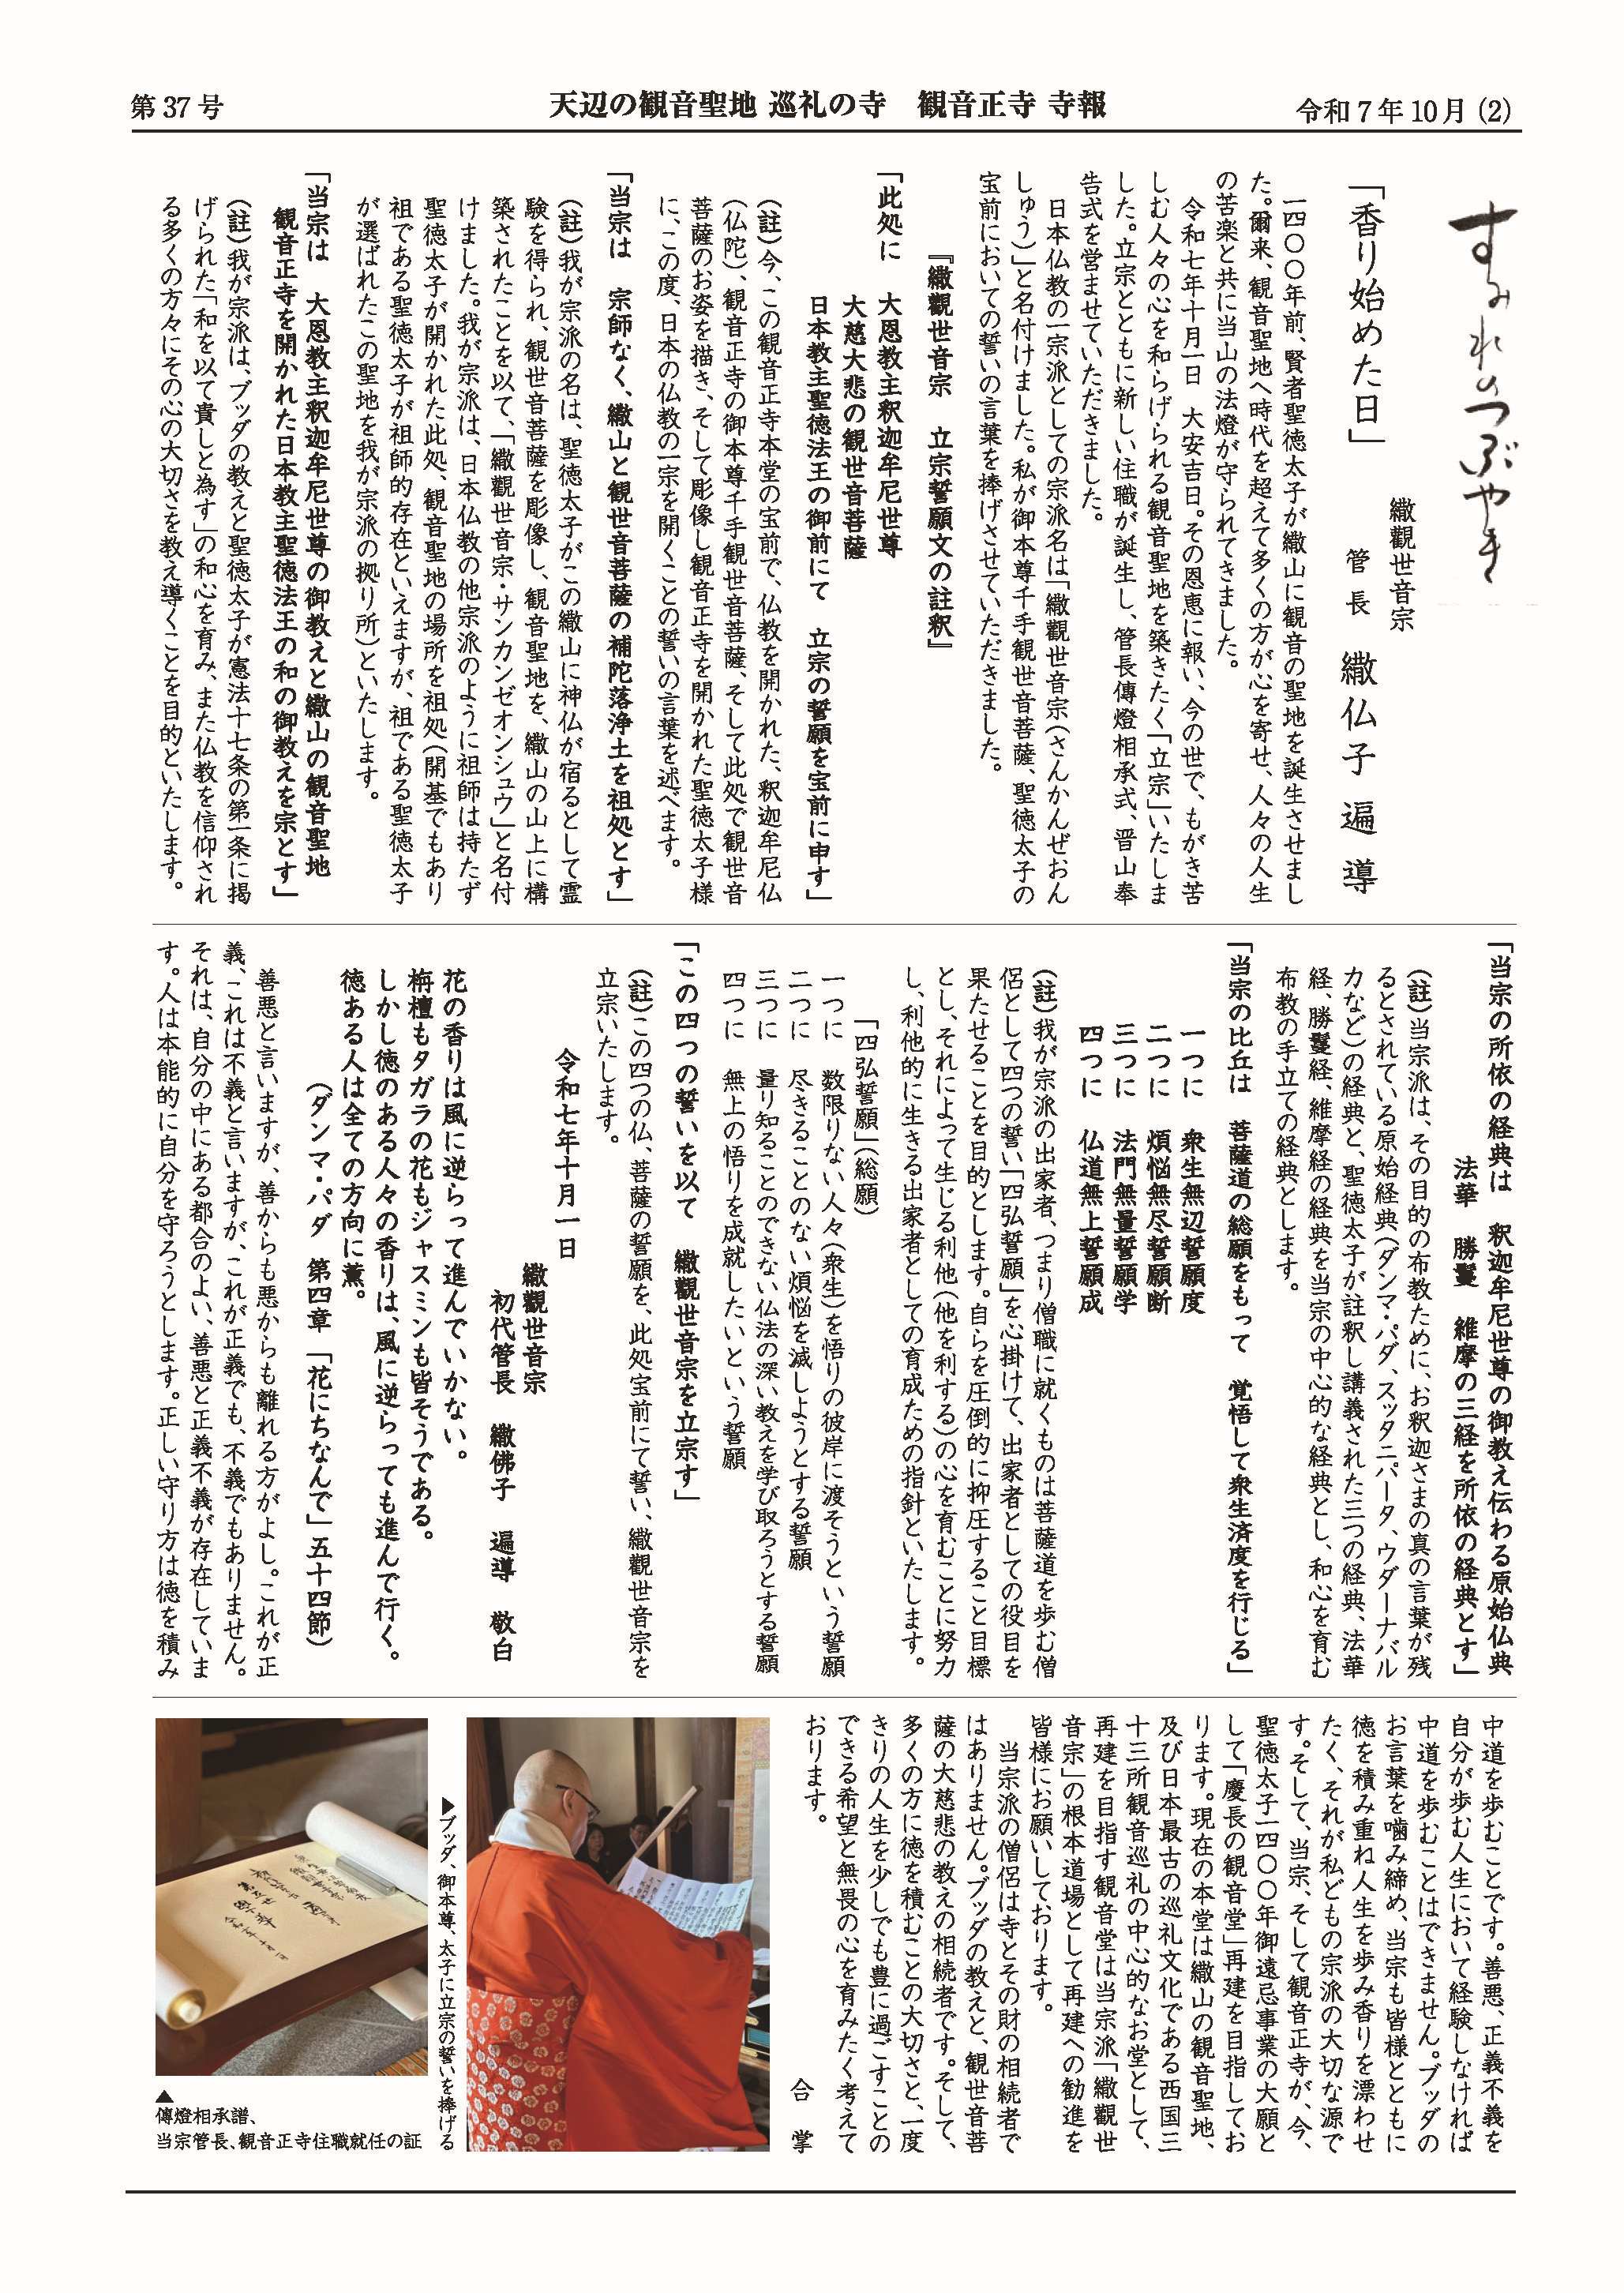 第37号
天辺の観音聖地 巡礼の寺　観音正寺 寺報
令和7年10月 (2)
すみれのつぶやき
「香り始めた日」
繖觀世音宗
管長　繖仏子　遍導
一四〇〇年前、賢者聖徳太子が繖山に観音の聖地を誕生させまし
た。爾来、観音聖地へ時代を超えて多くの方が心を寄せ、人々の人生
の苦楽と共に当山の法燈が守られてきました。
令和七年十月一日　大安吉日。その恩恵に報い、今の世で、もがき苦
しむ人々の心を和らげられる観音聖地を築きたく「立宗」いたしま
した。立宗とともに新しい住職が誕生し、管長傳燈相承式、晋山奉
告式を営ませていただきました。
日本仏教の一宗派としての宗派名は「繖觀世音宗（さんかんぜおん
しゅう）」と名付けました。私が御本尊千手観世音菩薩、聖徳太子の
宝前においての誓いの言葉を捧げさせていただきました。
『繖觀世音宗　立宗誓願文の註釈』
「此処に　大恩教主釈迦牟尼世尊
大慈大悲の観世音菩薩
日本教主聖徳法王の御前にて　立宗の誓願を宝前に申す」
（註）今、この観音正寺本堂の宝前で、仏教を開かれた、釈迦牟尼仏
（仏陀）、観音正寺の御本尊千手観世音菩薩、そして此処で観世音
菩薩のお姿を描き、そして彫像し観音正寺を開かれた聖徳太子様
に、この度、日本の仏教の一宗を開くことの誓いの言葉を述べます。
「当宗は　宗師なく、繖山と観世音菩薩の補陀落浄土を祖処とす」
（註）我が宗派の名は、聖徳太子がこの繖山に神仏が宿るとして霊
験を得られ、観世音菩薩を彫像し、観音聖地を、繖山の山上に構
築されたことを以て、「繖觀世音宗・サンカンゼオンシュウ」と名付
けました。我が宗派は、日本仏教の他宗派のように祖師は持たず
聖徳太子が開かれた此処、観音聖地の場所を祖処（開基でもあり
祖である聖徳太子が祖師的存在といえますが、祖である聖徳太子
が選ばれたこの聖地を我が宗派の拠り所）といたします。
「当宗は　大恩教主釈迦牟尼世尊の御教えと繖山の観音聖地
観音正寺を開かれた日本教主聖徳法王の和の御教えを宗とす」
（註）我が宗派は、ブッダの教えと聖徳太子が憲法十七条の第一条に掲
げられた「和を以て貴しと為す」の和心を育み、また仏教を信仰され
る多くの方々にその心の大切さを教え導くことを目的といたします。
「当宗の所依の経典は　釈迦牟尼世尊の御教え伝わる原始仏典
法華　勝鬘　維摩の三経を所依の経典とす」
（註）当宗派は、その目的の布教ために、お釈迦さまの真の言葉が残
るとされている原始経典（ダンマ・パダ、スッタニパータ、ウダーナバル
カなど）の経典と、聖徳太子が註釈し講義された三つの経典、法華
経、勝鬘経、維摩経の経典を当宗の中心的な経典とし、和心を育む
布教の手立ての経典とします。
「当宗の比丘は　菩薩道の総願をもって　覚悟して衆生済度を行じる」
一つに　衆生無辺誓願度
二つに　煩悩無尽誓願断
三つに　法門無量誓願学
四つに　仏道無上誓願成
（註）我が宗派の出家者、つまり僧職に就くものは菩薩道を歩む僧
侶として四つの誓い「四弘誓願」を心掛けて、出家者としての役目を
果たせることを目的とします。自らを圧倒的に抑圧すること目標
とし、それによって生じる利他（他を利する）の心を育むことに努力
し、利他的に生きる出家者としての育成ための指針といたします。
「四弘誓願」（総願）
一つに　数限りない人々（衆生）を悟りの彼岸に渡そうという誓願
二つに　尽きることのない煩悩を滅しようとする誓願
三つに　量り知ることのできない仏法の深い教えを学び取ろうとする誓願
四つに　無上の悟りを成就したいという誓願
「この四つの誓いを以て　繖觀世音宗を立宗す」
（註）この四つの仏、菩薩の誓願を、此処宝前にて誓い、繖觀世音宗を
立宗いたします。
令和七年十月一日
繖觀世音宗
初代管長　繖佛子　遍導　敬白
花の香りは風に逆らって進んでいかない。
栴檀もタガラの花もジャスミンも皆そうである。
しかし徳のある人々の香りは、風に逆らっても進んで行く。
徳ある人は全ての方向に薫。
（ダンマ・パダ　第四章「花にちなんで」五十四節）
善悪と言いますが、善からも悪からも離れる方がよし。これが正
義、これは不義と言いますが、これが正義でも、不義でもありません。
それは、自分の中にある都合のよい、善悪と正義不義が存在していま
す。人は本能的に自分を守ろうとします。正しい守り方は徳を積み
中道を歩むことです。善悪、正義不義を
自分が歩む人生において経験しなければ
中道を歩むことはできません。ブッダの
お言葉を噛み締め、当宗も皆様とともに
徳を積み重ね人生を歩み香りを漂わせ
たく、それが私どもの宗派の大切な源で
す。そして、当宗、そして観音正寺が、今、
聖徳太子一四〇〇年御遠忌事業の大願と
して「慶長の観音堂」再建を目指してお
ります。現在の本堂は繖山の観音聖地、
及び日本最古の巡礼文化である西国三
十三所観音巡礼の中心的なお堂として、
再建を目指す観音堂は当宗派「繖觀世
音宗」の根本道場として再建への勧進を
皆様にお願いしております。
当宗派の僧侶は寺とその財の相続者で
はありません。ブッダの教えと、観世音菩
薩の大慈悲の教えの相続者です。そして、
多くの方に徳を積むことの大切さと、一度
きりの人生を少しでも豊に過ごすことの
できる希望と無畏の心を育みたく考えて
おります。
合　掌
▶ブッダ、御本尊、太子に立宗の誓いを捧げる
▲
傳燈相承譜、
当宗管長、観音正寺住職就任の証